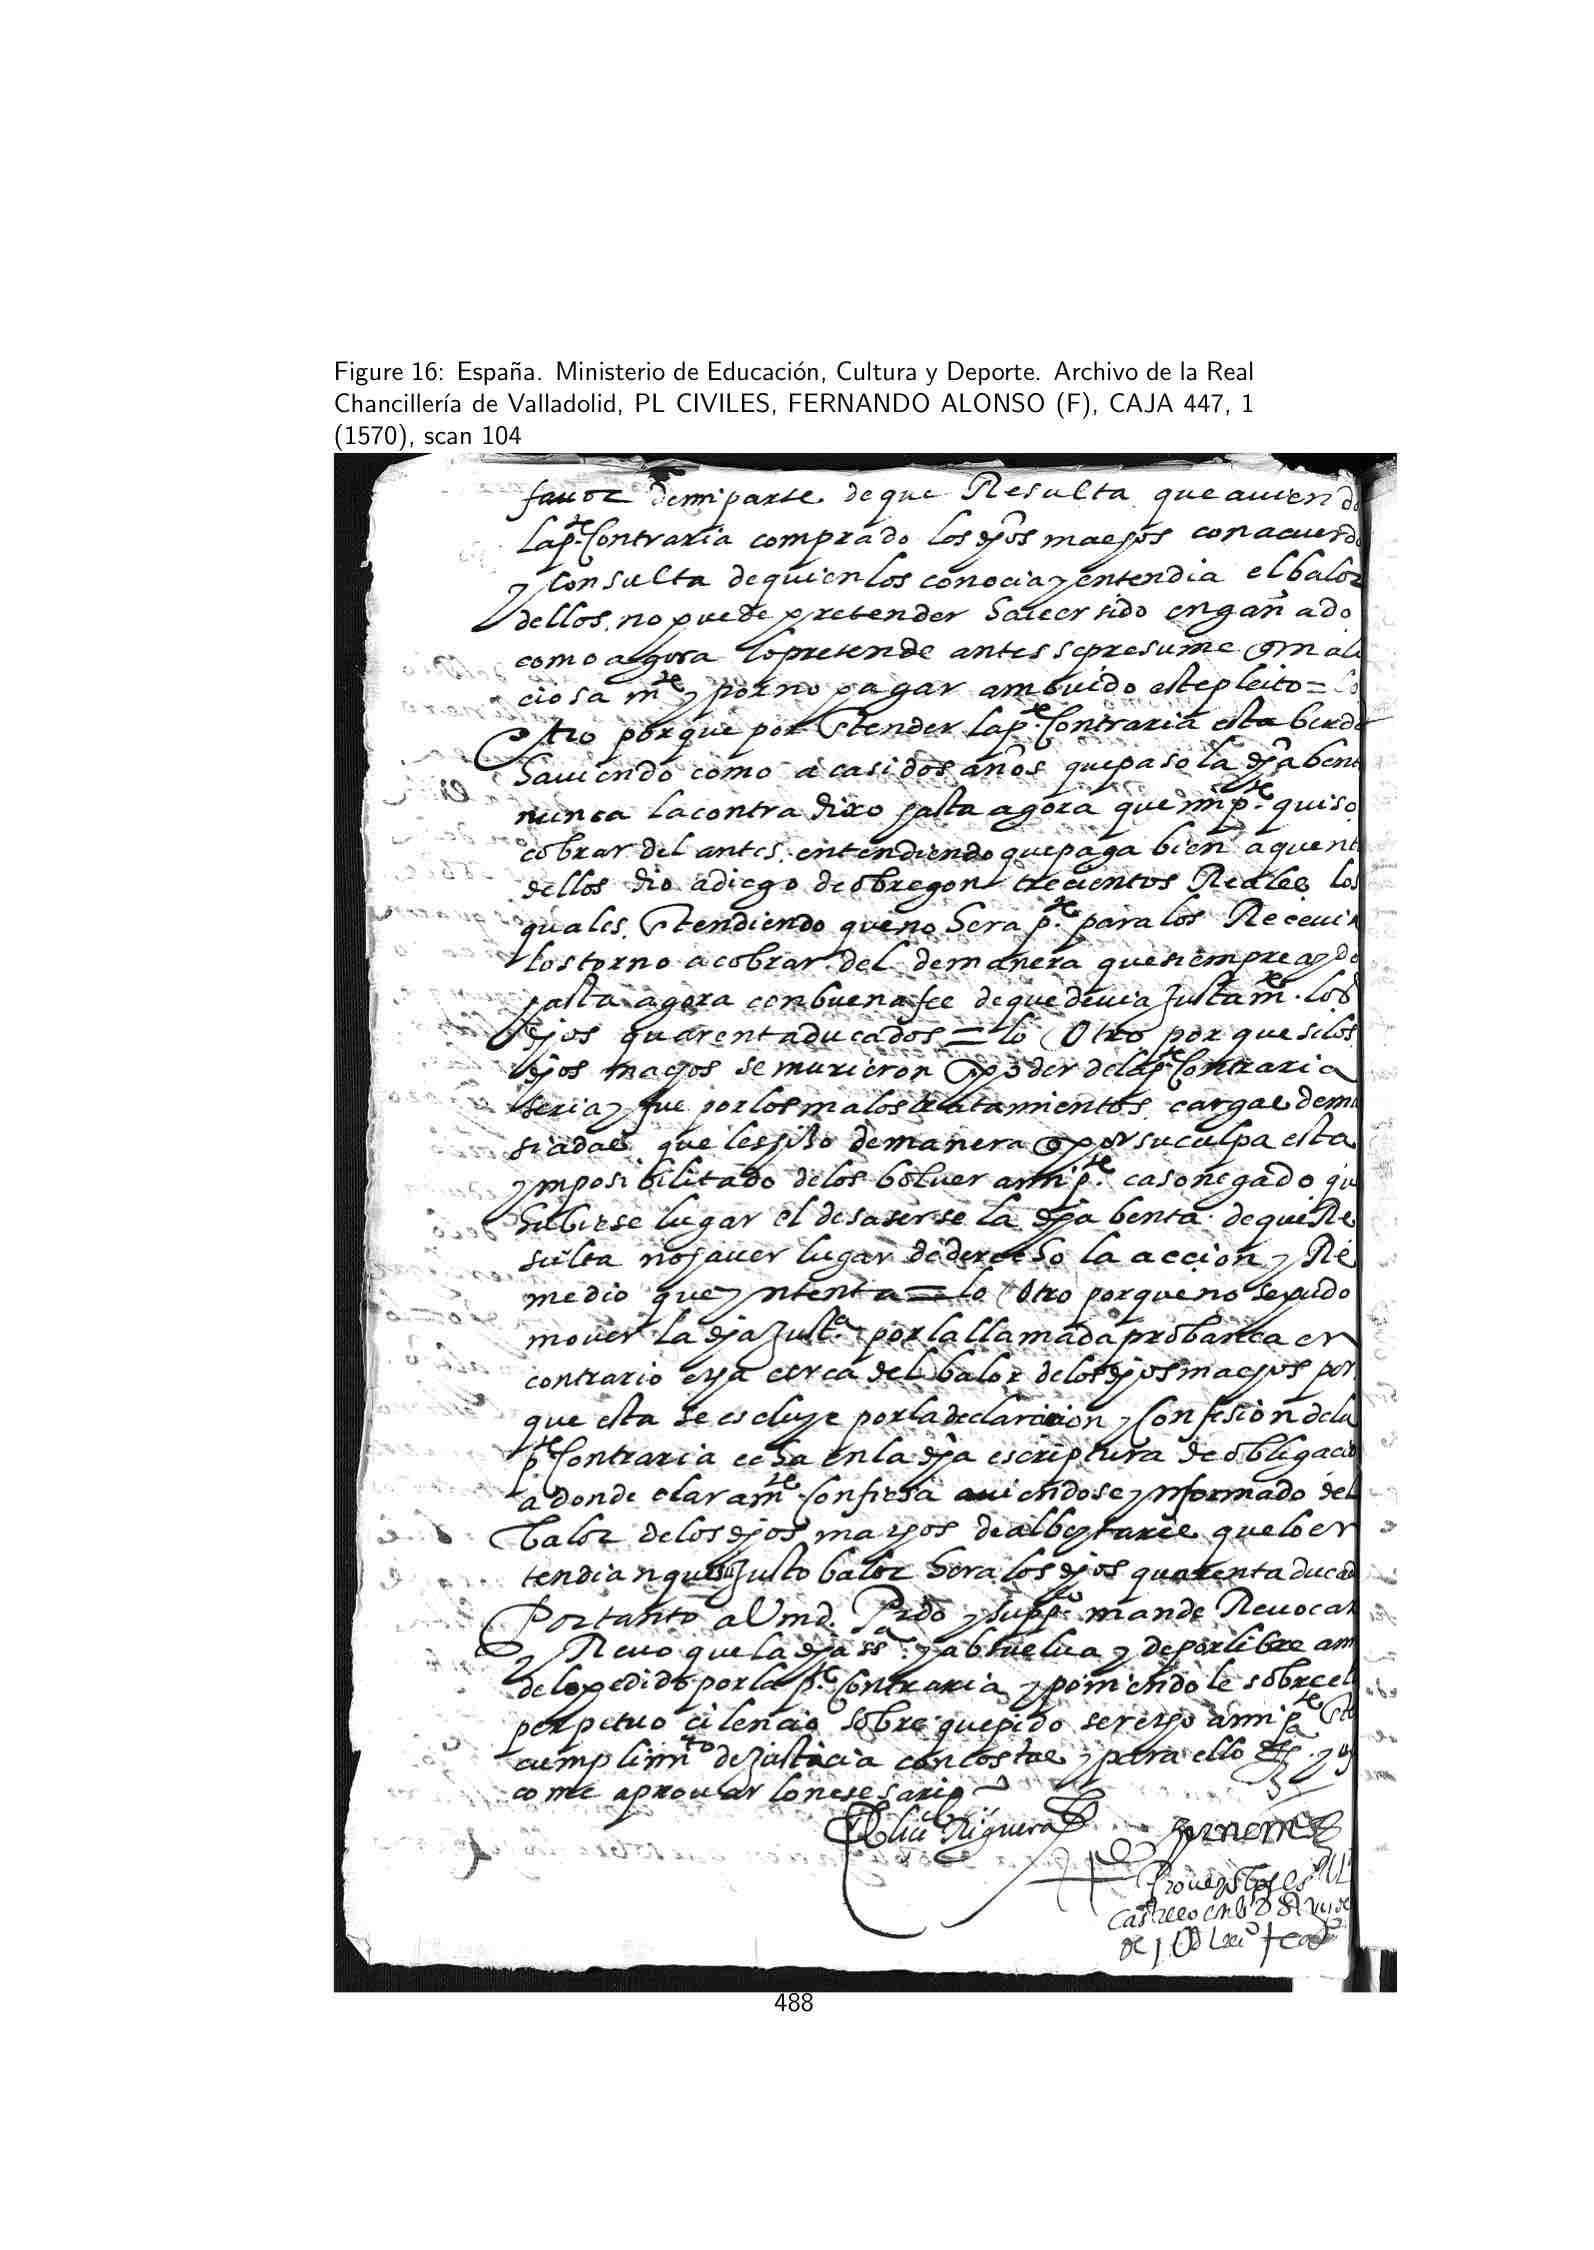 Figure 16: España. Ministerio de Educación, Cultura y Deporte. Archivo de la Real
Chancillería de Valladolid, PL CIVILES, FERNANDO ALONSO (F), CAJA 447, 1
(1570), scan 104
fauor demi parte. de que Resulta que auiendo
la pte Contraria comprado los dhos machos con acuerdo
y Consulta de quien los conocia y entendia el balor
dellos. no puede pretender hauer sido engañado
como agora lo pretende antes se presume
ciosa mte y por no pagar a mouido este pleito = lo
otro porque por entender la pte Contraria esta berdad
hauiendo como a casi dos años que paso la dha bent
nunca la contradixo hasta agora que mi pte quiso
cobrar del antes. entendiendo que paga bien a quent
dellos dio a diego de obregon trecientos Reales los
quales. entendiendo que no hera pte para los Receuir
los torno a cobrar del de manera que siempre a ydo
hasta agora con buena fee de que deuia Justamte. los
dhos quarenta ducados = lo Otro por que si los
dhos machos se murieron en poder de la pte Contraria
seria y fue por los malos tratamientos cargas dema
siadas que les hiço de manera q por su culpa esta
ymposibilitado de los boluer a mi pte. caso negado qu
hubiese lugar el desaserse la dha benta de que Re
sulta no hauer lugar de derecho la accion y Re
medio que yntenta = lo Otro porque no se pudo
mouer la dha Justa por la llamada probança en
contrario echa cerca del balor de los dhos machos por
que esta se escluye por la declaracion y Confesion de la
pte Contraria echa en la dha escriptura de obligacio
a donde claramte Confiesa auiendose ynformado del
balor de los dhos machos de albeytares que lo en
tendian que su Justo balor hera los dhos quarenta ducad
Por tanto a Vmd. Pido y suppco mande Reuocar
y Reuoque la dha ssa y absuelua y de por libre a mi
de lo pedido por la pte Contraria y poniendole sobre el
perpetuo cilencio sobre que pido ser echo a mi pte
cumplimto de Justicia con costas y para ello
come a prouar lo nesesario